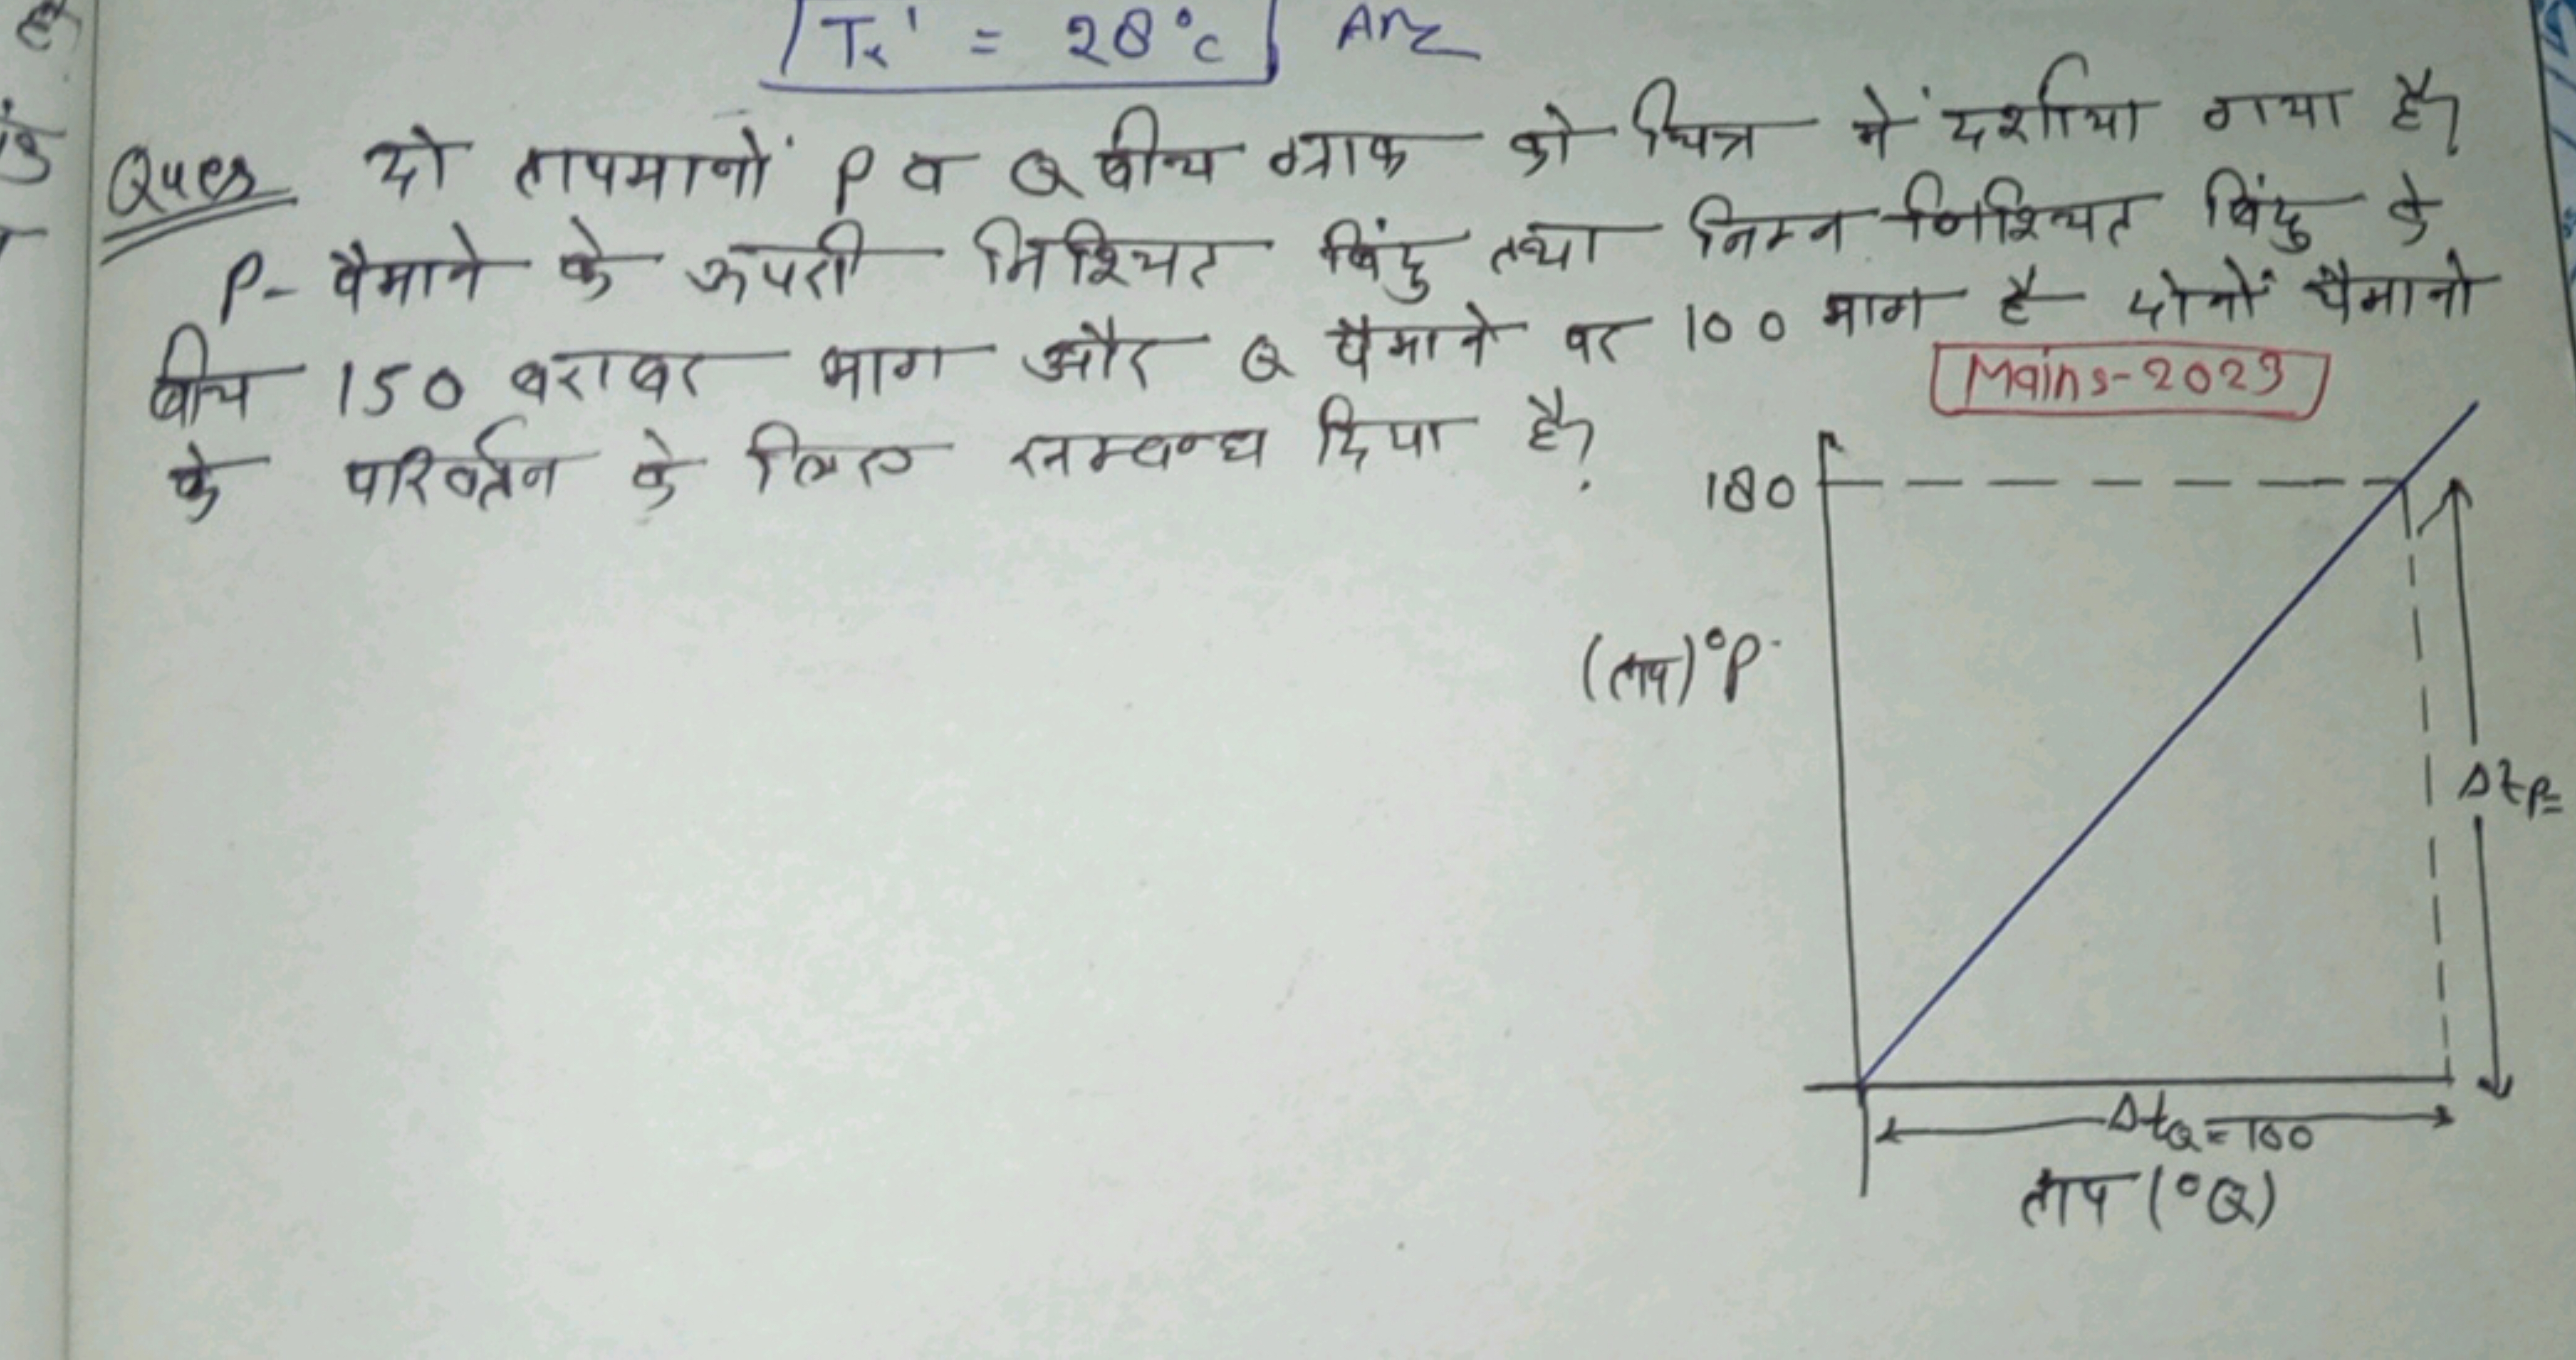 Tx' = 28°C Ans
Ques दो तापमानों P व Q बीच ग्राफ को चित्र में दर्शाया गया है।
P- पैमाने के ऊपरी निश्चित बिंदु तथा निम्न निश्चित बिंदु के
बीच 150 बराबर भाग और Q पैमाने पर 100 भाग है दोनों पैमानो
के परिवर्तन के लिए सम्बन्ध दिया है?
Mains-2023
180
(ताप)°P
Δtp=
ΔtQ=100
ताप (°Q)